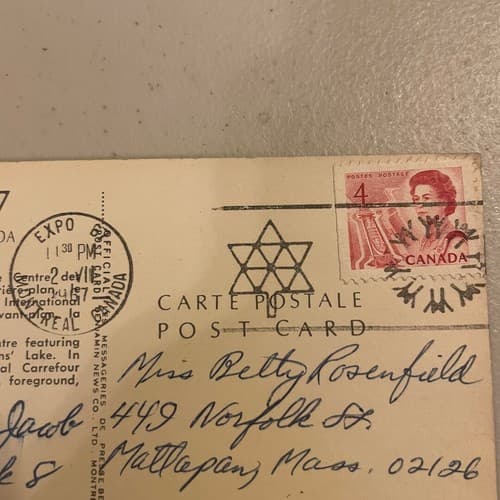 POSTES POSTAGE
4
CANADA
EXPO
11 30 PM
2 VII
MONTREAL CANADA
OFFICIAL POST CARD
MESSAGERIES DE PRESSE BENJAMIN NEWS CO., LTD., MONTR
CARTE POSTALE
POST CARD
DA
e Centre des
rière-plan, le
International
avant-plan, la
ntre featuring
ns' Lake. In
al Carrefour
foreground,
Jacob
k 8
Miss Betty Rosenfield
449 Norfolk St
Mattapan, Mass. 02126